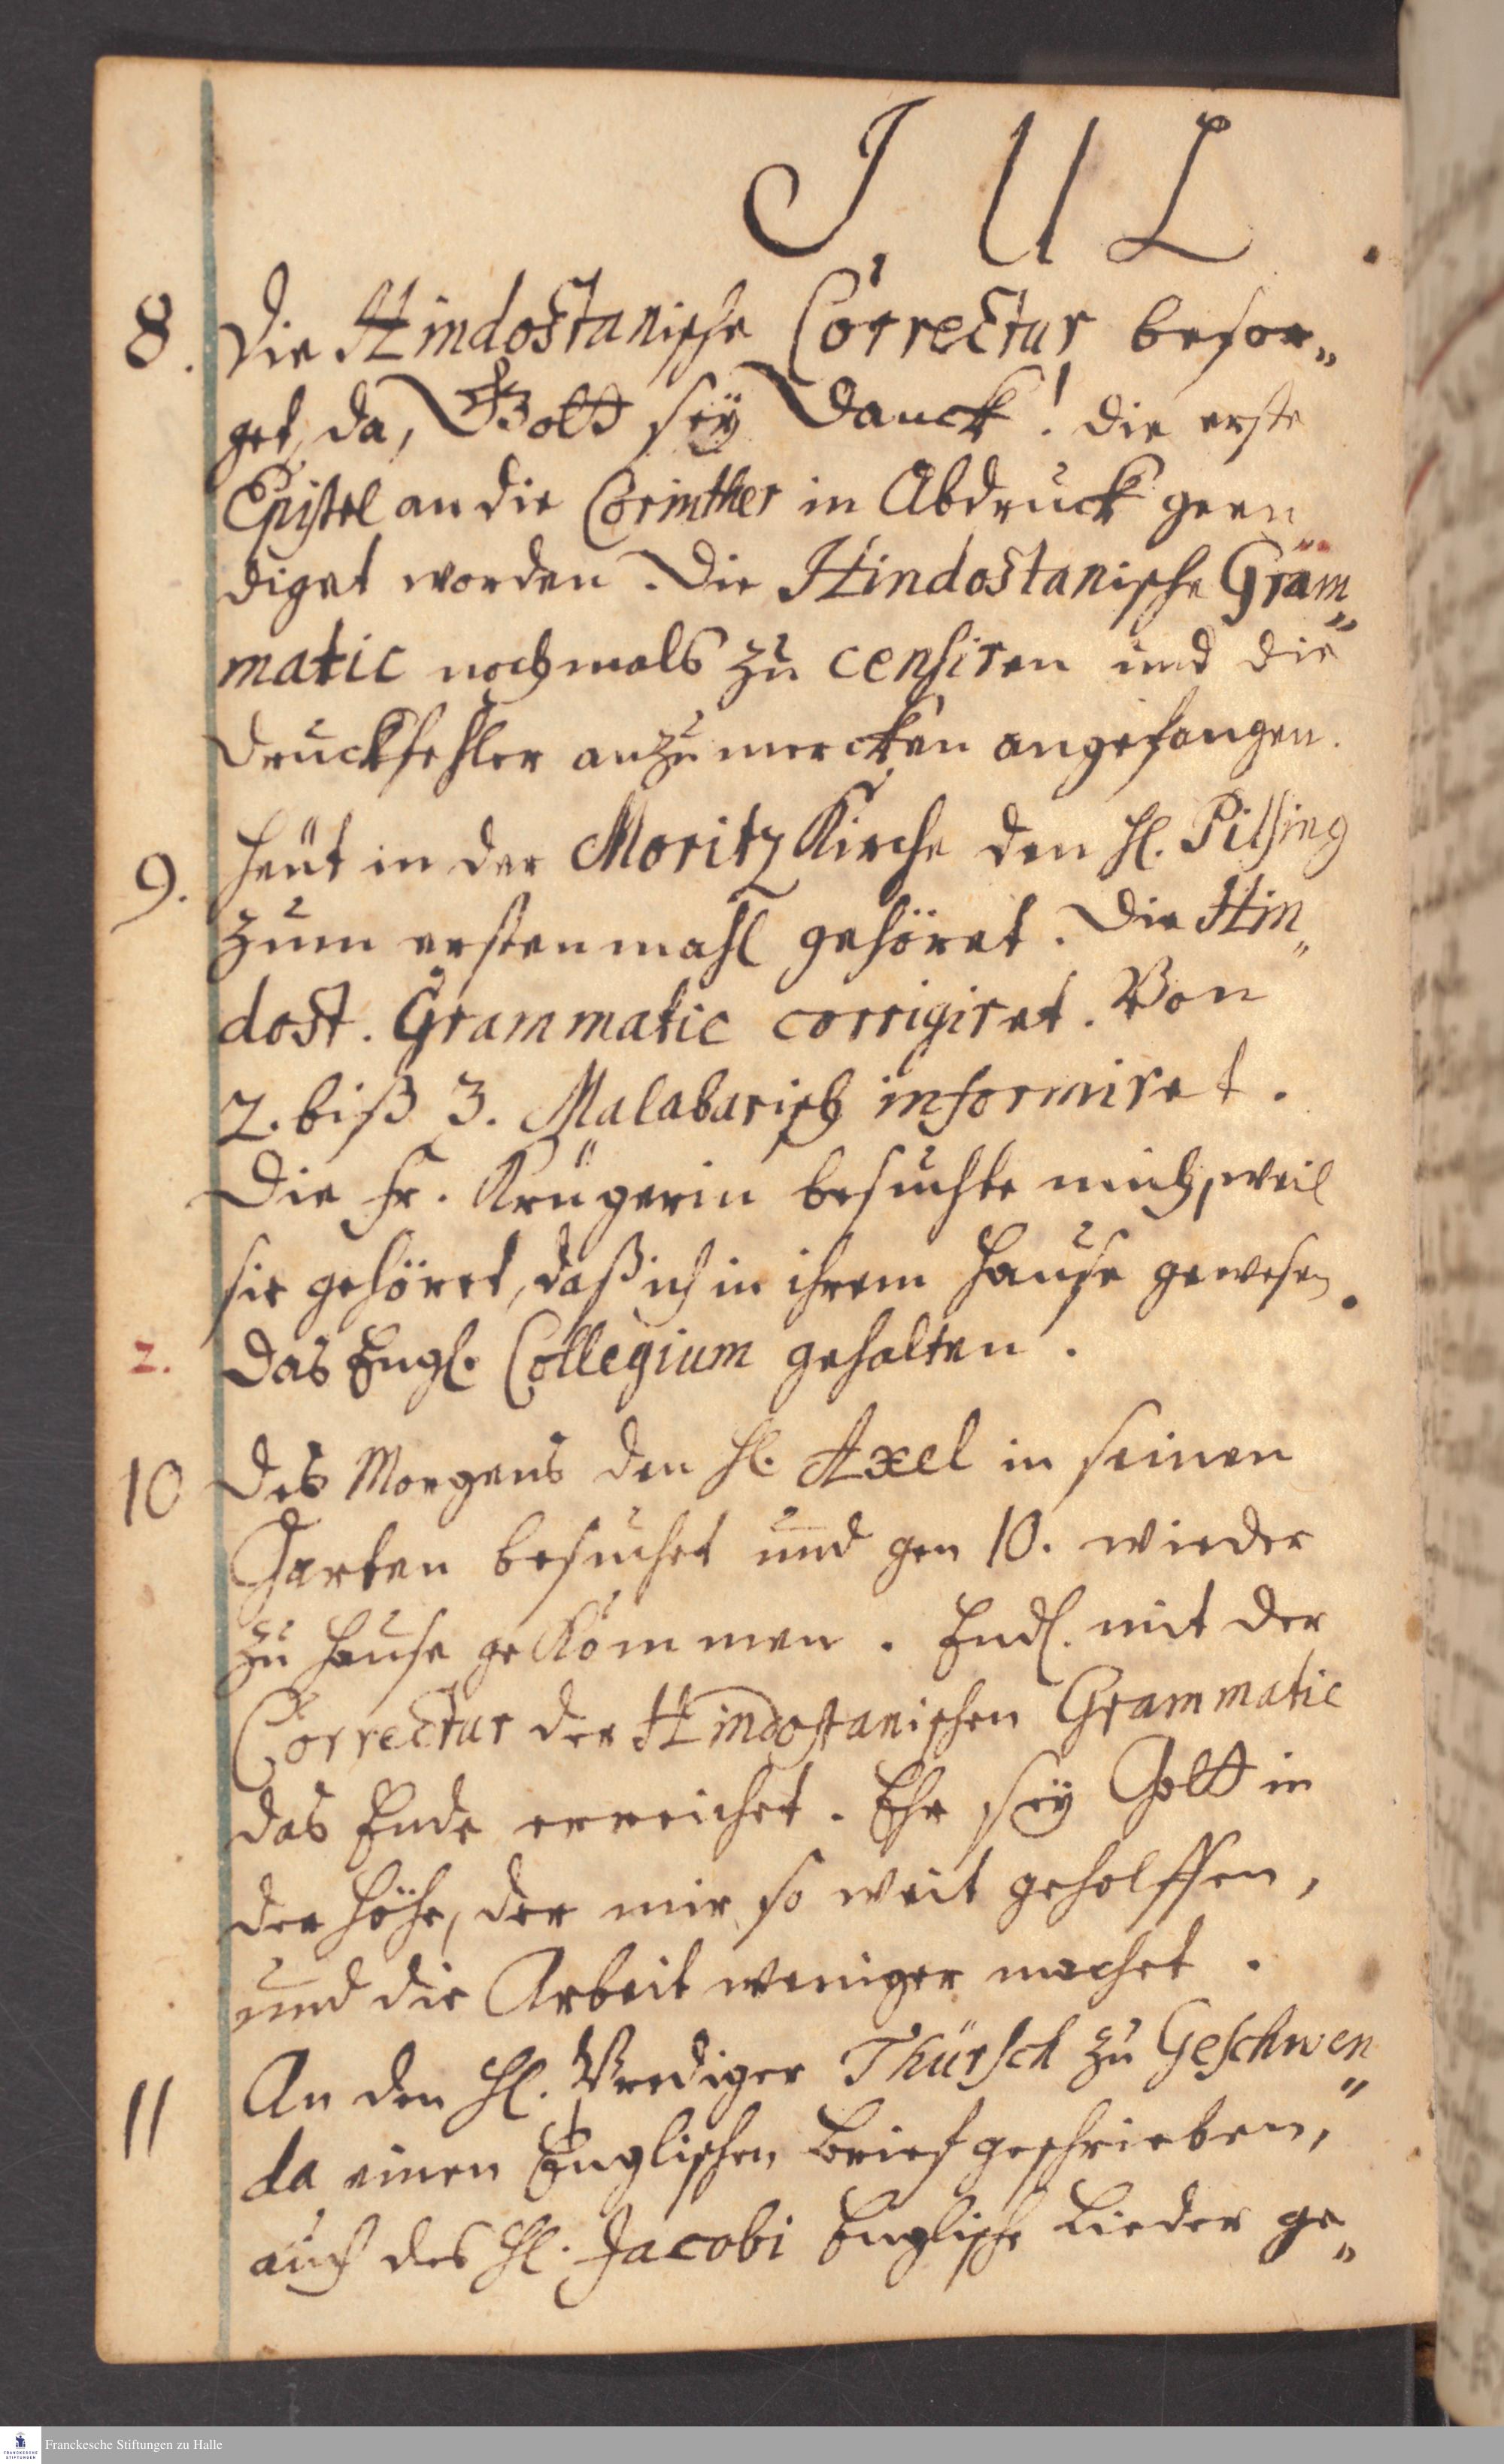 JUL.
8. Die Hindostanische Correctur besor„
get, da, Gott sey Danck! die erste
Epistel an die Corinther in Abdruck geen„
diget worden. Die Hindostanische Gram„
matic nochmals zu censiren und die
Druckfehler anzumercken angefangen.
9. Heut in der Moritz Kirche den H. Pilsing
zum ersten mahl gehöret. Die Hin„
dost. Grammatic corrigiret. Von
2. biß 3. Malabarisch informiret.
Die Fr. Krügerin besuchte mich, weil
sie gehöret, daß ich in ihrem Hause gewesen.
2. Das Engl. Collegium gehalten.
10 Des Morgens den H. Axel in seinen
Garten besuchet und gen 10. wieder
zu Hause gekommen. Endl. mit der
Correctur der Hindostanischen Grammatic
das Ende erreichet. Ehr sey Gott in
der Höhe, der mir so weit geholffen,
und die Arbeit weniger machet.
11 An den H. Prediger Thürsch zu Geschwen„
da einen Englischen Brief geschrieben,
auch des H. Jacobi Englische Lieder ge„
FRANCKESCHE STIFTUNGEN
Franckesche Stiftungen zu Halle